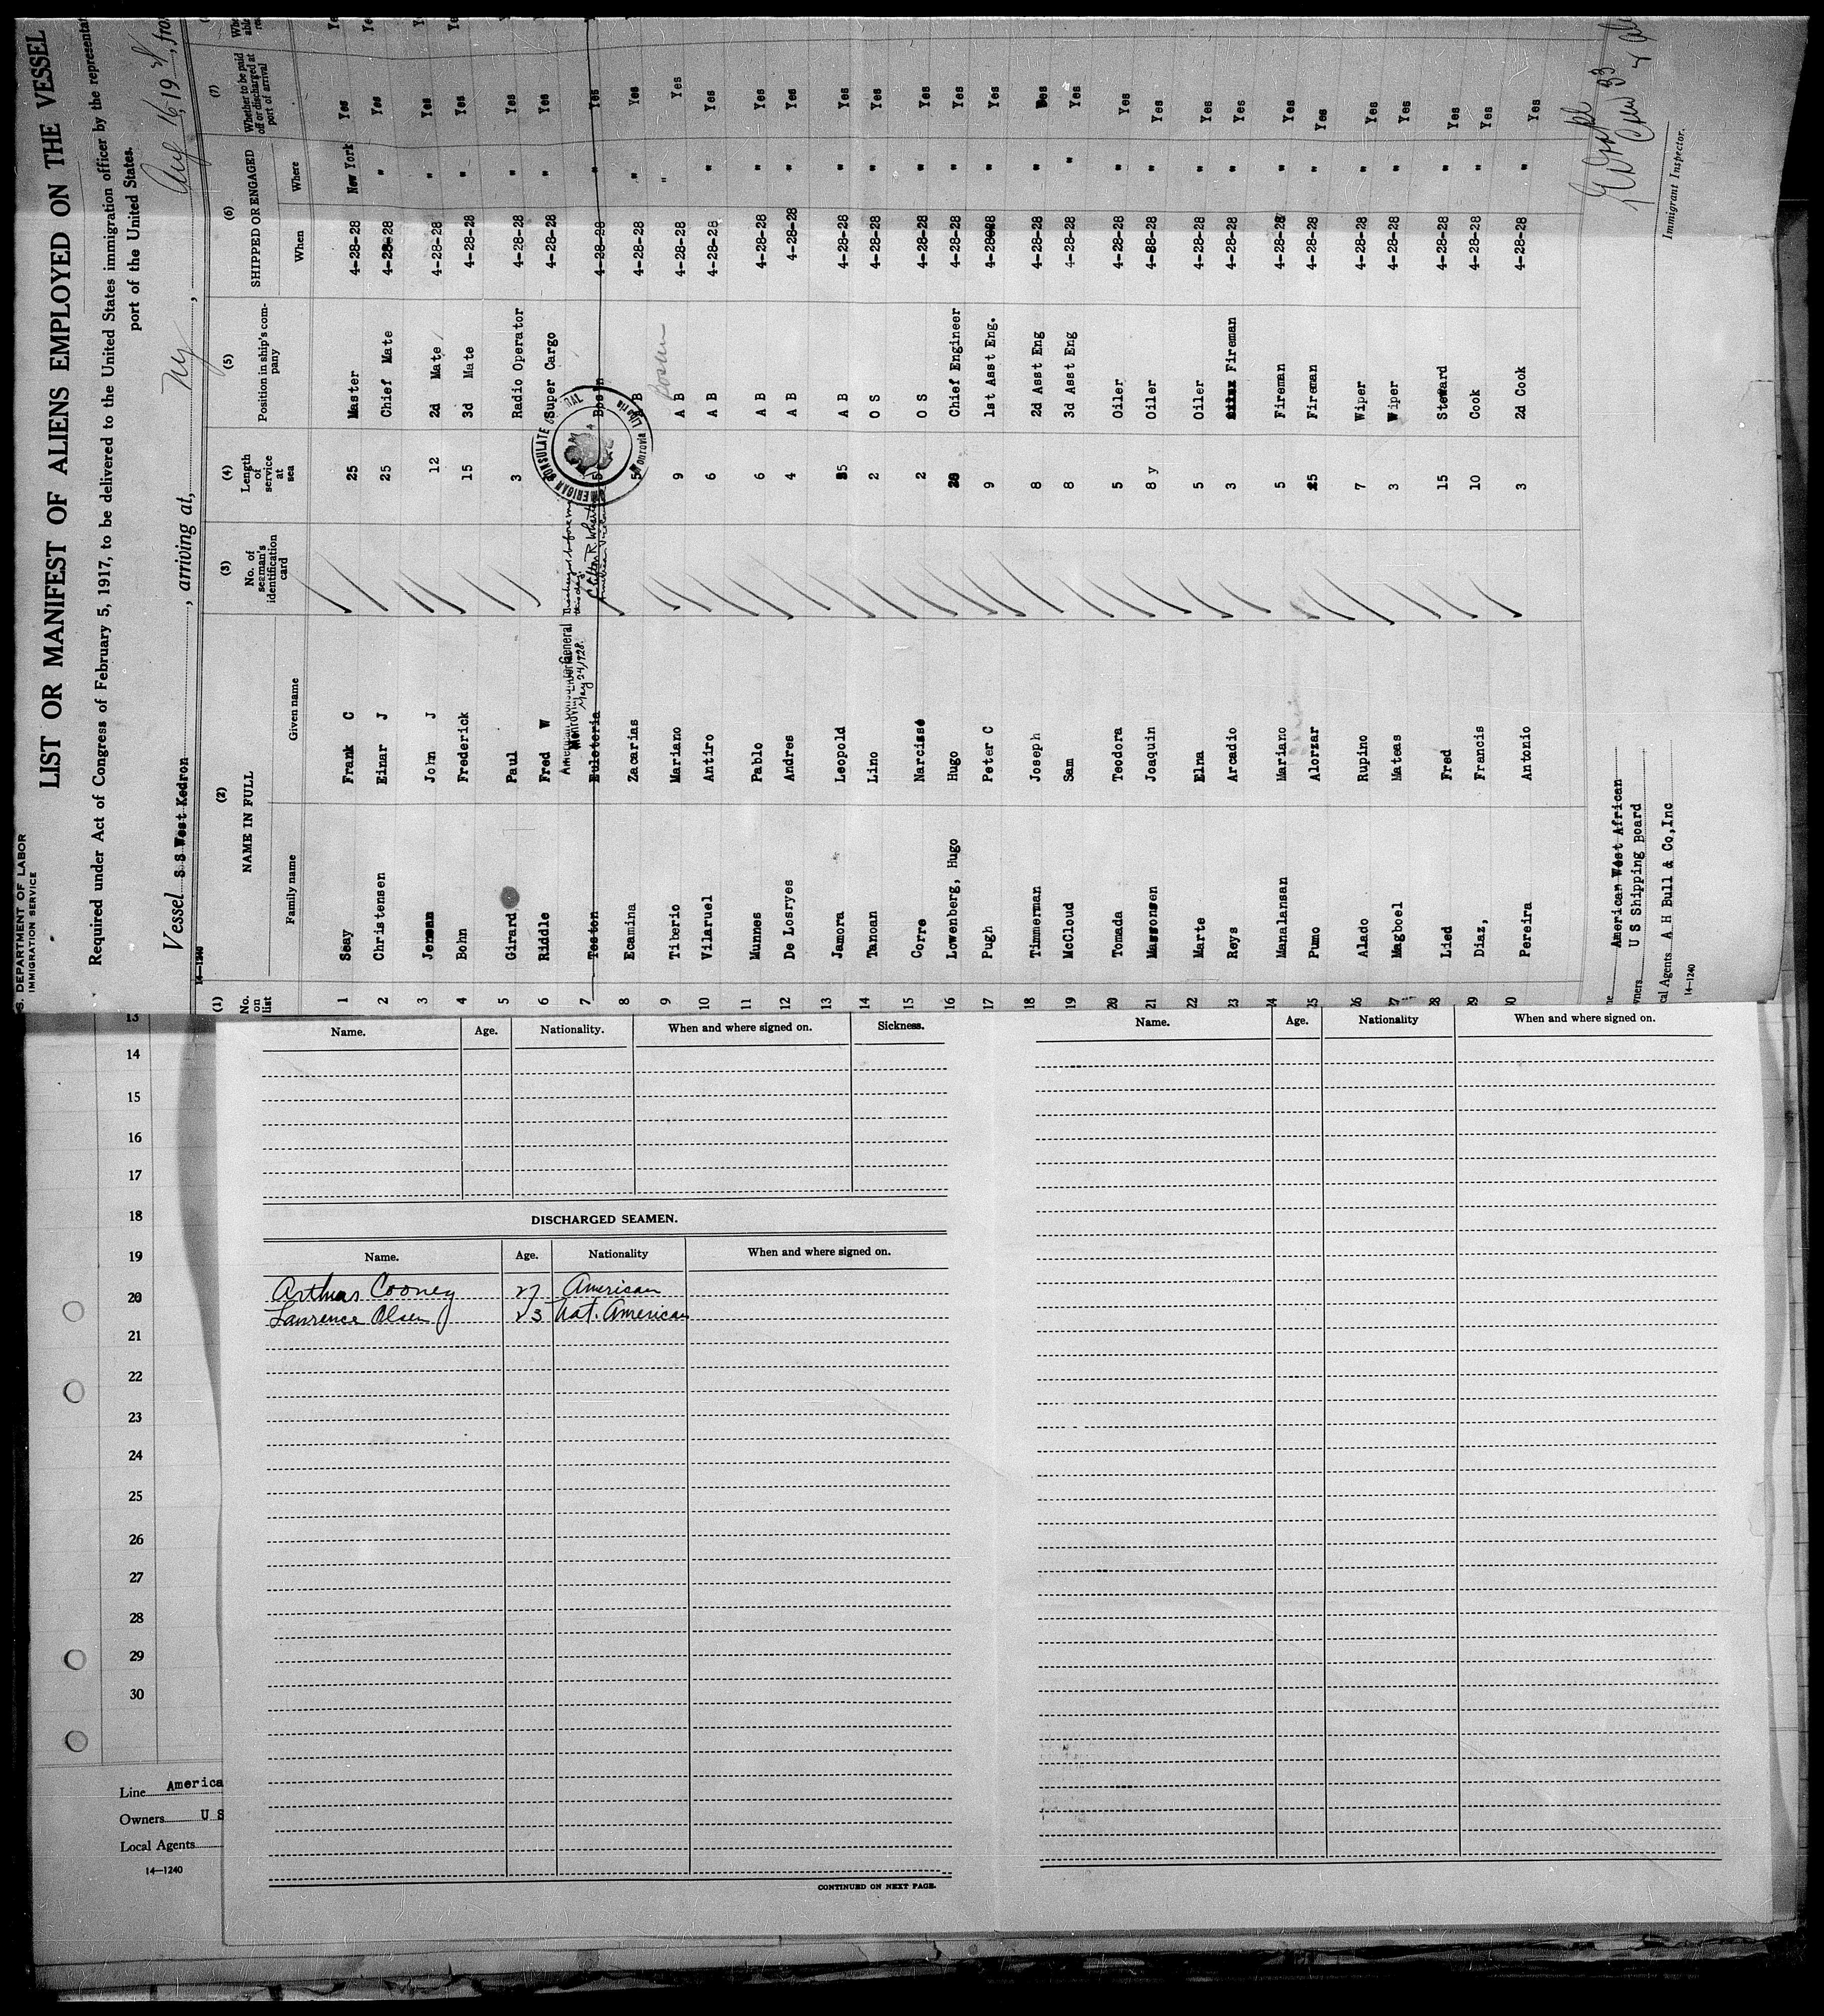 S. DEPARTMENT OF LABOR
IMMIGRATION SERVICE
LIST OR MANIFEST OF ALIENS EMPLOYED ON THE VESSEL
Required under Act of Congress of February 5, 1917, to be delivered to the United States immigration officer by the representat
port of the United States.
Vessel S S West Kedron, arriving at, NY, Aug 16, 19 , from
14—1240
(1) (2) (3) (4) (5) (6) (7)
No. on list NAME IN FULL Family name Given name No. of seaman's identification card Length of service at sea Position in ship's company SHIPPED OR ENGAGED When Where Whether to be paid off or discharged at port of arrival
1 Seay Frank C 25 Master 4-28-28 New York Yes Ye
2 Christensen Einar J 25 Chief Mate 4-28-28 " Yes Ye
3 Jensen John J 12 2d Mate 4-28-28 " Yes Y
4 Bohn Frederick 15 3d Mate 4-28-28 " Yes Ye
5 Girard Paul 3 Radio Operator 4-28-28 " Yes Y
6 Riddle Fred W Super Cargo 4-28-28 " Yes Y
7 Teston Euleteria 5 Bosn 4-28-28 " Yes Y
8 Ecamina Zacarias 5 A B 4-28-28 " Yes
9 Tiberio Mariano 9 A B Bosun 4-28-28 " Yes
10 Vilaruel Antiro 6 A B 4-28-28 " Yes
11 Munnes Pablo 6 A B 4-28-28 " Yes
12 De Losryes Andres 4 A B 4-28-28 " Yes
13 Jamora Leopold A B 4-28-28 " Yes
14 Tanoan Lino 2 O S 4-28-28 " Yes
15 Corre Narcisso 2 O S 4-28-28 " Yes
16 Lowenberg, Hugo Hugo Chief Engineer 4-28-28 " Yes
17 Pugh Peter C 9 1st Asst Eng. 4-28-28 " Yes
18 Timmerman Joseph 8 2d Asst Eng 4-28-28 " Yes
19 McCloud Sam 8 3d Asst Eng 4-28-28 " Yes
20 Tomada Teodora 5 Oiler 4-28-28 " Yes
21 Massonsen Joaquin 8 y Oiler 4-28-28 " Yes
22 Marte Elna 5 Oiler 4-28-28 " Yes
23 Reys Arcadio 3 Fireman 4-28-28 " Yes
24 Manalansan Mariano 5 Fireman 4-28-28 " Yes
25 Pumo Alorzar 25 Fireman 4-28-28 " Yes
26 Alado Rupino 7 Wiper 4-28-28 " Yes
27 Magboel Mateas 3 Wiper 4-28-28 " Yes
28 Lied Fred 15 Steward 4-28-28 " Yes
29 Diaz, Francis 10 Cook 4-28-28 " Yes
30 Pereira Antonio 3 2d Cook 4-28-28 " Yes
American Consulate General
Monrovia
May 24/1928.
Discharged before me
this day.
Clifton R. Wharton
American Vice Consul
AMERICAN CONSULATE GENERAL
Monrovia Liberia
Crew 33
Immigrant Inspector.
ne American West African
wners U S Shipping Board
cal Agents A H Bull & Co, Inc
14—1240
13
14
15
16
17
18
19
20
21
22
23
24
25
26
27
28
29
30
Line America
Owners U S
Local Agents
14—1240
Name. Age. Nationality. When and where signed on. Sickness.
DISCHARGED SEAMEN.
Name. Age. Nationality When and where signed on.
Arthur Cooney 27 American
Lawrence Olsen 23 Nat. American
CONTINUED ON NEXT PAGE.
Name. Age. Nationality When and where signed on.